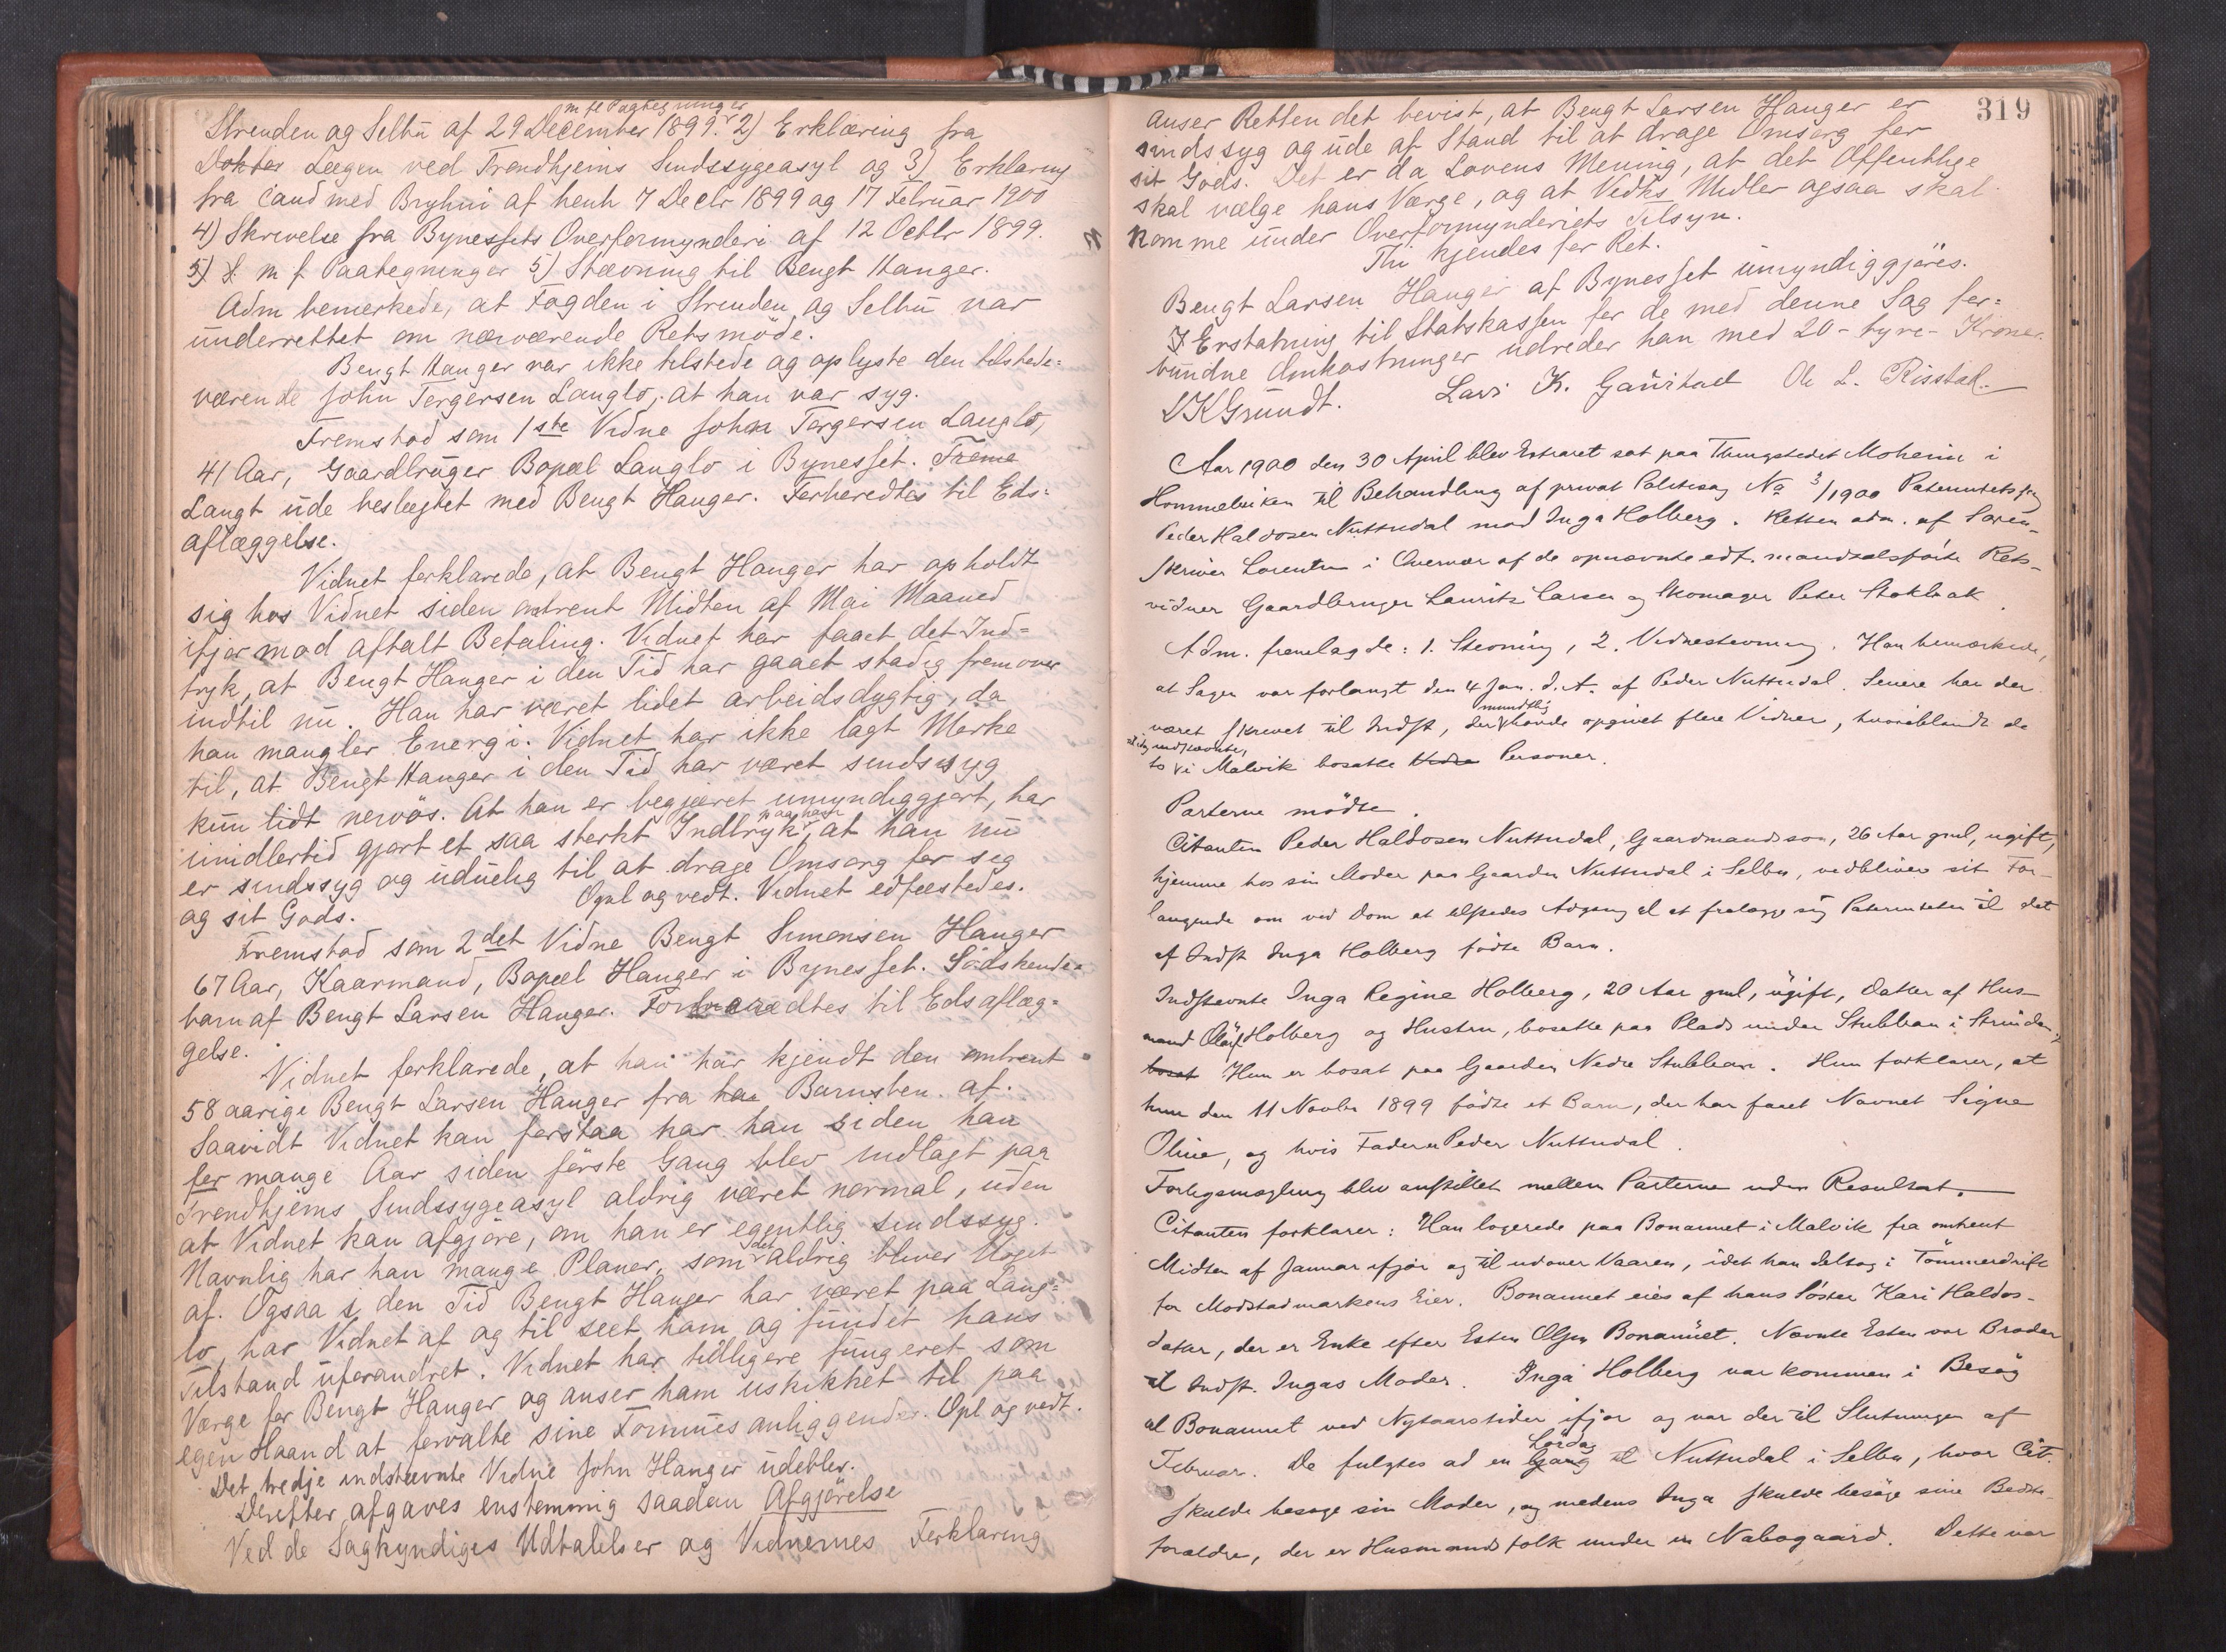 m fl Paategninger
Strinden og Selbu af 29 December 1899. 2) Erklæring fra
Dokter Lægen ved Trondhjems Sindssygeasyl og 3) Erklæring
fra cand med Bryhni af henh 7 Decbr 1899 og 17 Februar 1900
4) Skrivelse fra Bynessets Overformynderi af 12 Octbr 1899.
5) f. m f. Paategninger 5) Stævning til Bengt Hanger.
Adm bemerkede, at Fogden i Strinden og Selbu var
underrettet om nærværende Retsmöde.
Bengt Hanger var ikke tilstede og oplyste den tilstede=
værende John Tørgersen Langlo, at han var syg.
Fremstod som 1ste Vidne John Tørgersen Langlo,
41 Aar, Gaardbruger Bopæl Langlo i Bynesset. Frems
Langt ude beslægtet med Bengt Hanger. Forberedtes til Eds=
aflæggelse.
Vidnet forklarede, at Bengt Hanger har opholdt
sig hos Vidnet siden omtrent Midten af Mai Maaned
ifjor mod aftalt Betaling. Vidnet har faaet det Ind=
tryk, at Bengt Hanger i den Tid har gaaet stadig fremover
indtil nu. Han har været lidet arbeidsdygtig, da
han mangler Energi. Vidnet har ikke lagt Merke
til, at Bengt Hanger i den Tid har været sindssyg
kun lidt nervös. At han er begjæret umyndiggjort, har
imidlertid gjort et saa sterkt Indtryk paa ham, at han nu
er sindssyg og uduelig til at drage Omsorg for sig
og sit Gods. Opl og vedt. Vidnet edfæstedes.
Fremstod som 2det Vidne Bengt Simonsen Hanger
67 Aar, Kaarmand, Bopæl Hanger i Bynesset. Södskende=
barn af Bengt Larsen Hanger. Forberedtes til Edsaflæg=
gelse.
Vidnet forklarede, at han har kjendt den omtrent
58 aarige Bengt Larsen Hanger fra ha Barnsben af.
Saavidt Vidnet kan forstaa har han siden han
for mange Aar siden förste Gang blev indlagt paa
Trondhjems Sindssygeasyl aldrig været normal, uden
at Vidnet kan afgjöre, om han er egentlig sindssyg.
Navnlig har han mange Planer, som det aldrig bliver Noget
af. Ogsaa i den Tid Bengt Hanger har været paa Lang=
lo, har Vidnet af og til seet ham og fundet hans
Tilstand uforandret. Vidnet har tidligere fungeret som
Værge for Bengt Hanger og anser ham uskikket til paa
egen Haand at forvalte sine Formuesanliggender. Opl og vedt.
Det tredje indstævnte Vidne John Hanger udeblev.
Derefter afgaves enstemmig saadan Afgjörelse
Ved de Sagkyndiges Udtalelser og Vidnernes Forklaring
319
anser Retten det bevist, at Bengt Larsen Hanger er
sindssyg og ude af Stand til at drage Omsorg for
sit Gods. Det er da Lovens Mening, at det Offentlige
skal vælge hans Værge, og at Vidks Midler ogsaa skal
komme under Overformynderiets Tilsyn.
Thi kjendes for Ret.
Bengt Larsen Hanger af Bynesset umyndiggjöres.
I Erstatning til Statskassen for de med denne Sag for=
bundne Omkostninger udreder han med 20 - tyve - Kroner.
LKGrundt. Lars K. Gaustad Ole L. Risstad.
Aar 1900 den 30 April blev Extraret sat paa Thingstedet Moheim i
Hommelviken til Behandling af privat Politisag No 3/1900 Paternitetssag
Peder Haldosen Nussudal mod Inga Holberg. Retten adm. af Soren-
skriver Lorentzen i Overvær af de opnævnte edf. mandtalsførte Rets-
vidner Gaardbruger Laurits Larsen og Skomager Peter Stokbak.
Adm. fremlagde: 1. Stevning, 2. Vidnestevning. Han bemærkede,
at Sagen var forlangt den 4 Jan. d. A. af Peder Nussudal. Senere har der
været skrevet til Indst, der mundtlig havde opgivet flere Vidner, hvoriblandt de
to indstævnte, i Malvik bosatte Vidne Personer.
Parterne mödte.
Citanten Peder Haldosen Nussudal, Gaardmandssön, 26 Aar gml, ugift,
hjemme hos sin Moder paa Gaarden Nussudal i Selbu, vedbliver sit For-
langende om ved Dom at tilstedes Adgang til at fralægge sig Paterniteten til det
af Indst Inga Holberg födte Barn.
Indstevnte Inga Regine Holberg, 20 Aar gml, ugift, Datter af Hus-
mand Oluf Holberg og Hustru, bosatte paa Plads under Stubban i Strinden,
bosat Hun er bosat paa Gaarden Nedre Stubban. Hun forklarer, at
hun den 11 Novbr 1899 födte et Barn, der har faaet Navnet Signe
Oline, og hvis Fader er Peder Nussudal.
Forligsmægling blev anstillet mellem Parterne uden Resultat.
Citanten forklarer: Han logerede paa Bonaunet i Malvik fra omtrent
Midten af Januar ifjor og til udover Vaaren, idet han deltog i Tömmerdrift
for Mostadmarkens Eier. Bonaunet eies af hans Söster Kari Haldos-
datter, der er Enke efter Esten Olsen Bonaunet. Nevnte Esten var Broder
til Indst. Ingas Moder. Inga Holberg var kommen i Besög
til Bonaunet ved Nytaarstider ifjor og var der til Slutningen af
Februar. De fulgtes ad en Lördag Gang til Nussudal i Selbu, hvor Cit.
skulde besøge sin Moder, og medens Inga skulde besöge sine Bedste-
forældre, der er Husmandsfolk under en Nabogaard. Dette var